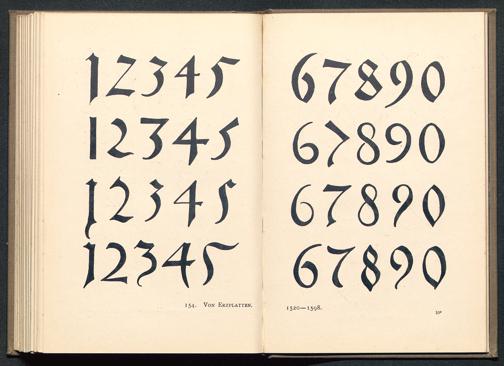 12345
12345
12345
12345
154. Von Erzplatten.
67890
67890
67890
67890
1520—1598.